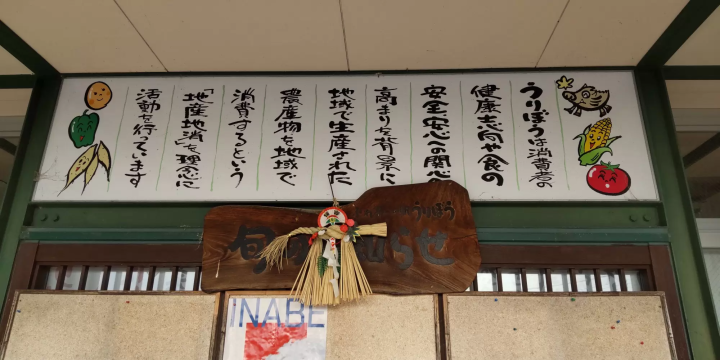 うりぼうは消費者の
健康志向や食の
安全・安心への関心の
高まりを背景に
地域で生産された
農産物を地域で
消費するという
「地産地消」を理念に
活動を行っています
うりぼう
旬
らせ
INABE